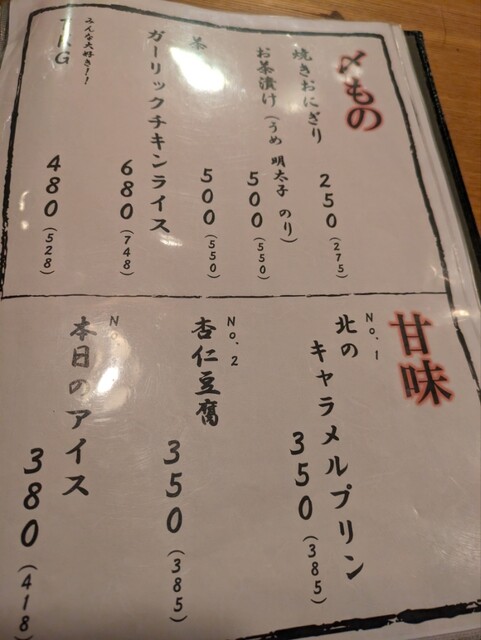 〆もの
焼きおにぎり 250(275)
お茶漬け(うめ 明太子 のり) 500(550)
茶 500(550)
ガーリックチキンライス 680(748)
みんな大好き!!
TKG 480(528)
甘味
No.1
北の
キャラメルプリン 350(385)
No.2
杏仁豆腐 350(385)
No.
本日のアイス 380(418)